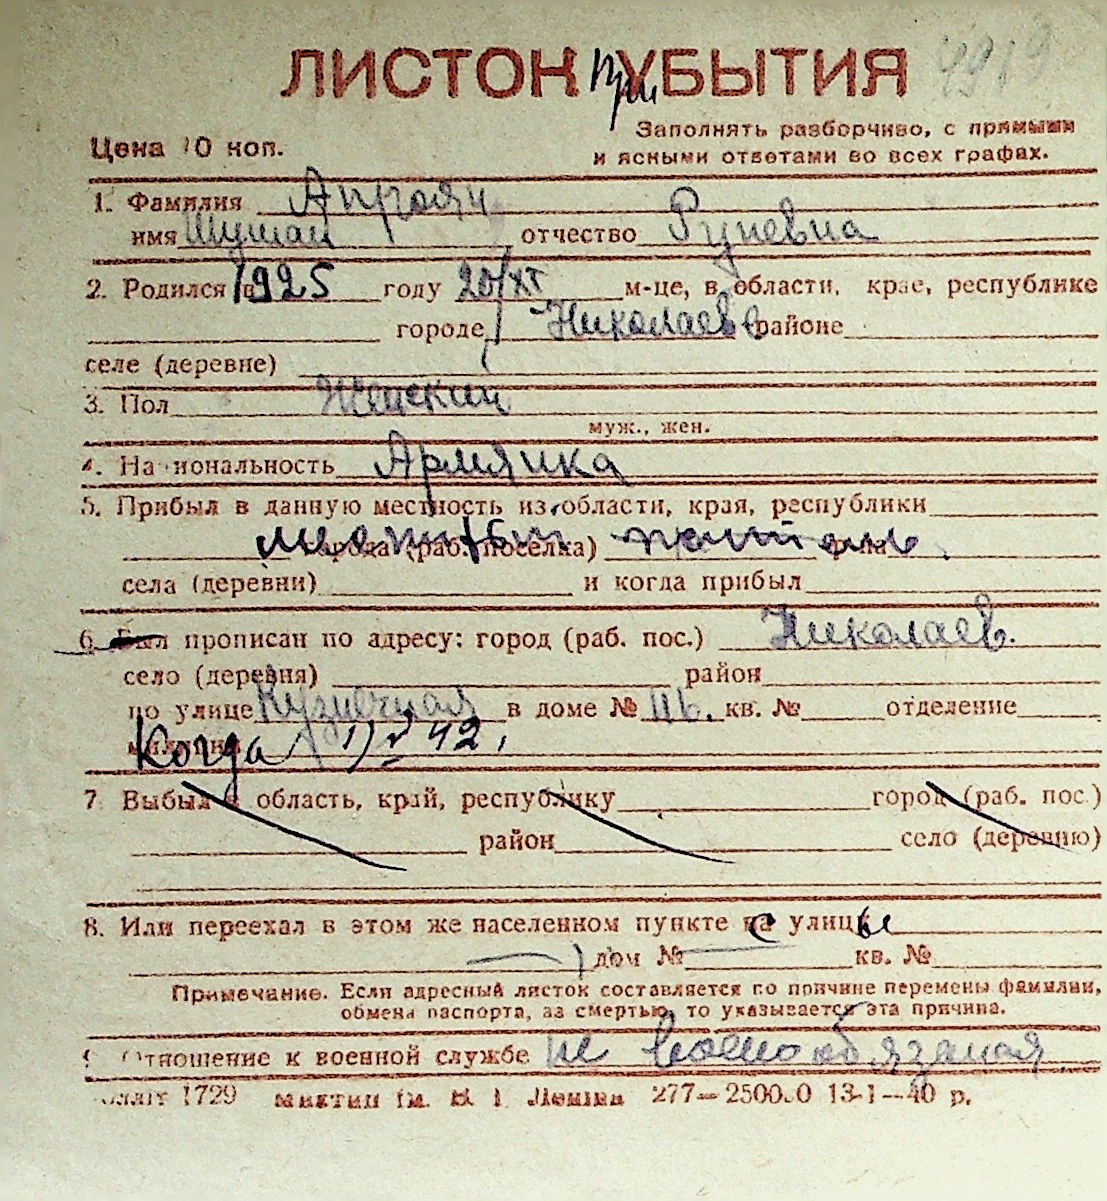 ЛИСТОК при УБЫТИЯ 4919
Цена 10 коп.
Заполнять разборчиво, с прямыми
и ясными ответами во всех графах.
1. Фамилия Апроян
имя Шушан отчество Руневна
2. Родился в 1925 году 20/XI м-це, в области, крае, республике
городе Николаев районе
селе (деревне)
3. Пол Женский
муж., жен.
4. Национальность Армянка
5. Прибыл в данную местность из области, края, республики
города (раб. поселка)
села (деревни) и когда прибыл
6. Был прописан по адресу: город (раб. пос.) Николаев.
село (деревня) район
по улице Кузнечная в доме № кв. № отделение
милиции Когда 42.
7 Выбыл в область, край, республику город (раб. пос.)
район село (деревню)
8. Или переехал в этом же населенном пункте с улицы
дом № кв. №
Примечание. Если адресный листок составляется по причине перемены фамилии,
обмена паспорта, за смертью, то указывается эта причина.
9. Отношение к военной службе не военнообязаная
1729 277—250000 13-I—40 р.